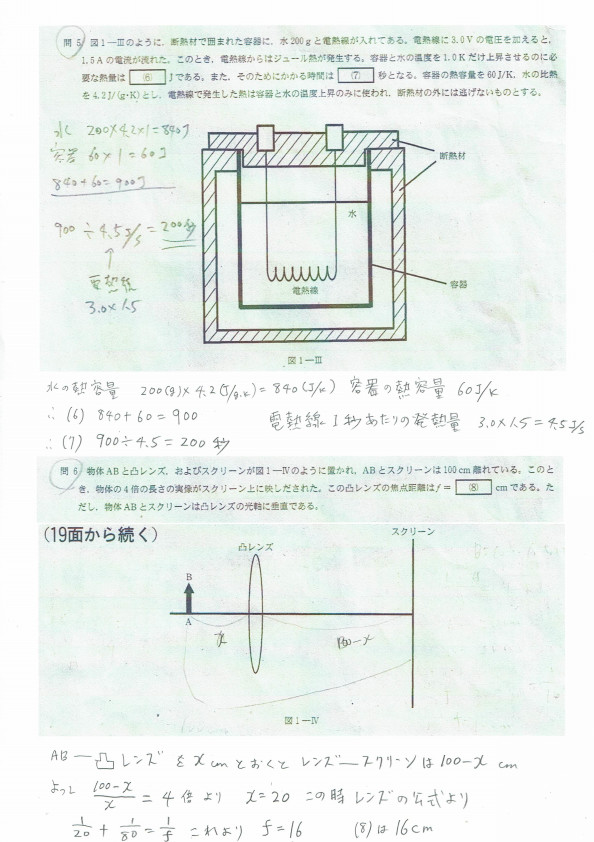 問5 図1—Ⅲのように、断熱材で囲まれた容器に、水200gと電熱線が入れてある。電熱線に3.0Vの電圧を加えると、
1.5Aの電流が流れた。このとき、電熱線からはジュール熱が発生する。容器と水の温度を1.0Kだけ上昇させるのに必
要な熱量は ⑥ Jである。また、そのためにかかる時間は ⑦ 秒となる。容器の熱容量を60J/K、水の比熱
を4.2J/(g·K)とし、電熱線で発生した熱は容器と水の温度上昇のみに使われ、断熱材の外には逃げないものとする。
水 200×4.2×1=840J
容器 60×1=60J
840+60=900J
900÷4.5J/s=200秒
↑
電熱線
3.0×1.5
断熱材
水
電熱線
容器
図1—Ⅲ
水の熱容量 200(g)×4.2(J/g.K)=840(J/K) 容器の熱容量 60J/K
∴(6) 840+60=900 電熱線1秒あたりの発熱量 3.0×1.5=4.5J/s
∴(7) 900÷4.5=200秒
問6 物体ABと凸レンズ、およびスクリーンが図1—Ⅳのように置かれ、ABとスクリーンは100cm離れている。このと
き、物体の4倍の長さの実像がスクリーン上に映しだされた。この凸レンズの焦点距離はf= ⑧ cmである。た
だし、物体ABとスクリーンは凸レンズの光軸に垂直である。
(19面から続く)
スクリーン
凸レンズ
B
A
x
100-x
図1—Ⅳ
AB—凸レンズをxcmとおくとレンズ—スクリーンは100-x cm
よって 100-x/x=4倍より x=20 この時レンズの公式より
1/20+1/80=1/f これより f=16 (8)は16cm